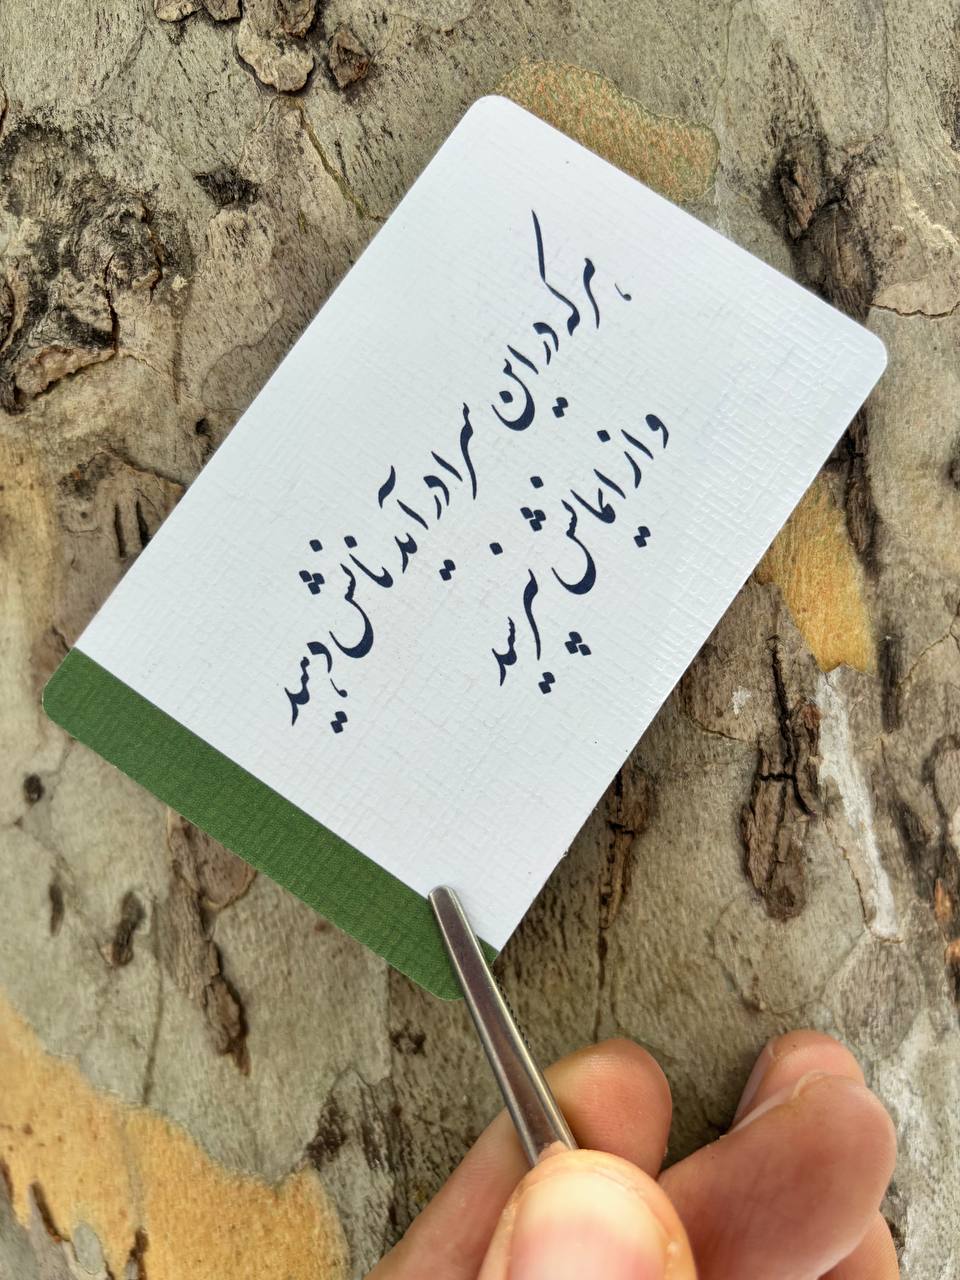 هر که در این سرا درآید نانش دهید
و از ایمانش نپرسید